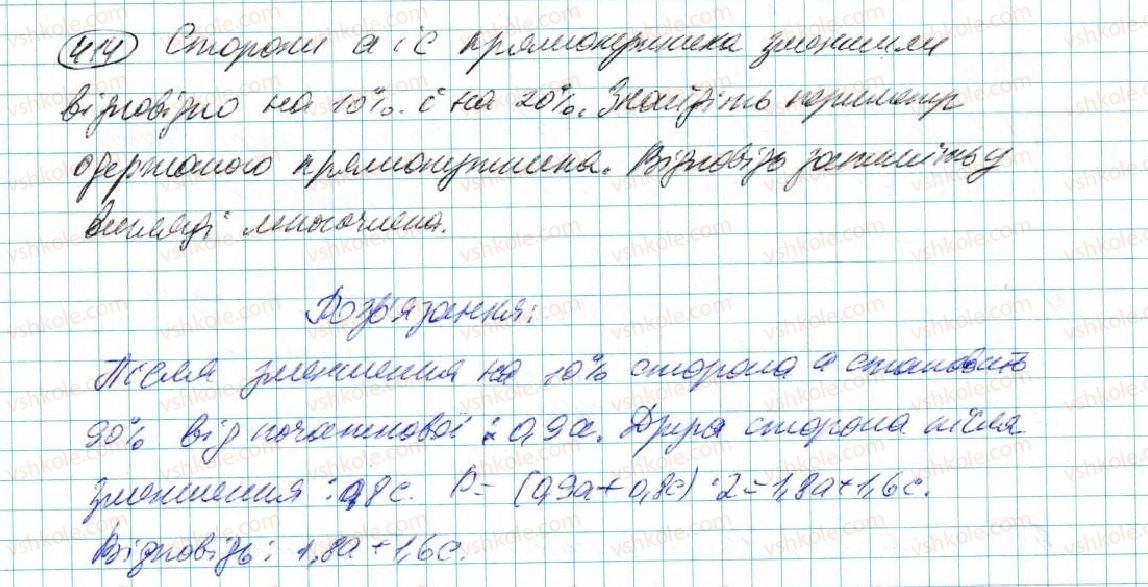 414 Сторони a і c прямокутника зменшили
відповідно на 10%. і на 20%. Знайдіть периметр
одержаного прямокутника. Відповідь запишіть у
вигляді многочлена.
Розв'язання:
Після зменшення на 10% сторона a становить
90% від початкової : 0,9a. Друга сторона після
зменшення : 0,8c. P = (0,9a + 0,8c) · 2 = 1,8a + 1,6c.
Відповідь : 1,8a + 1,6c.